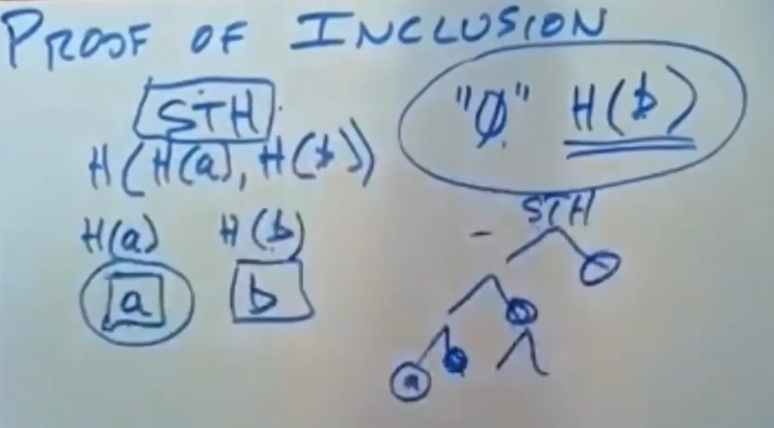 PROOF OF INCLUSION
STH
H(H(a), H(b))
"0" H(b)
H(a) H(b)
a b
STH
a